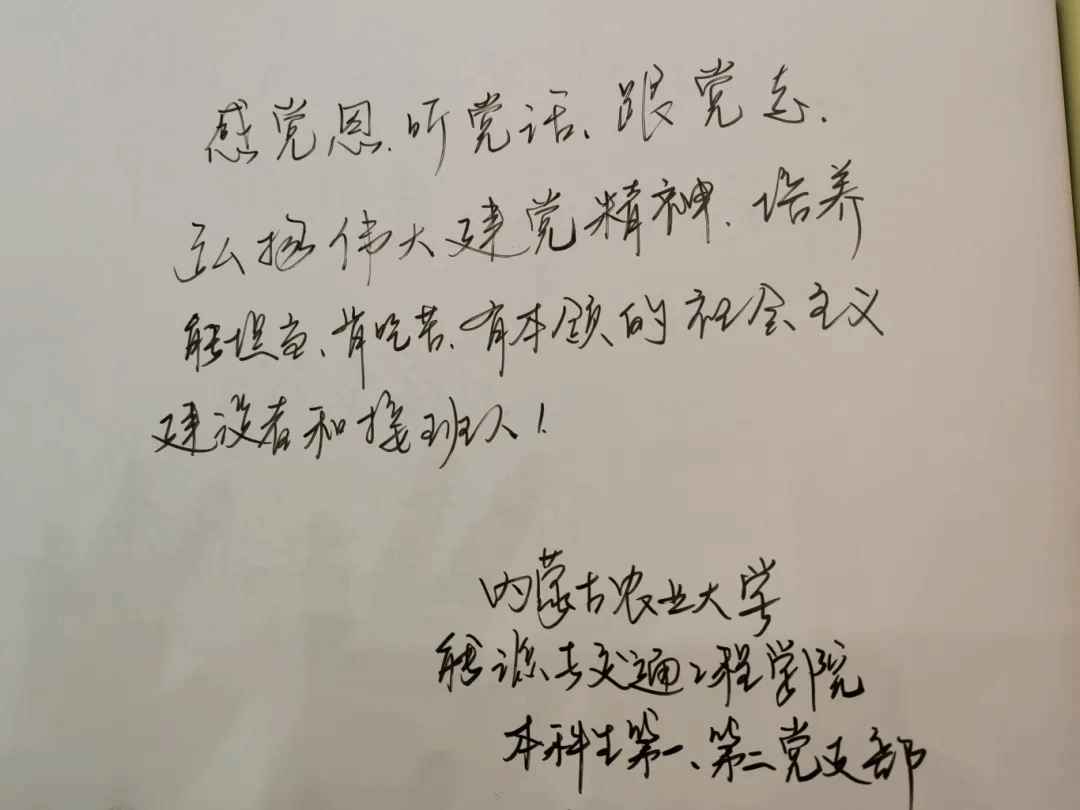 感党恩、听党话、跟党走、
弘扬伟大建党精神、培养
能担当、肯吃苦、有本领的社会主义
建设者和接班人!
内蒙古农业大学
能源与交通工程学院
本科生第一、第二党支部